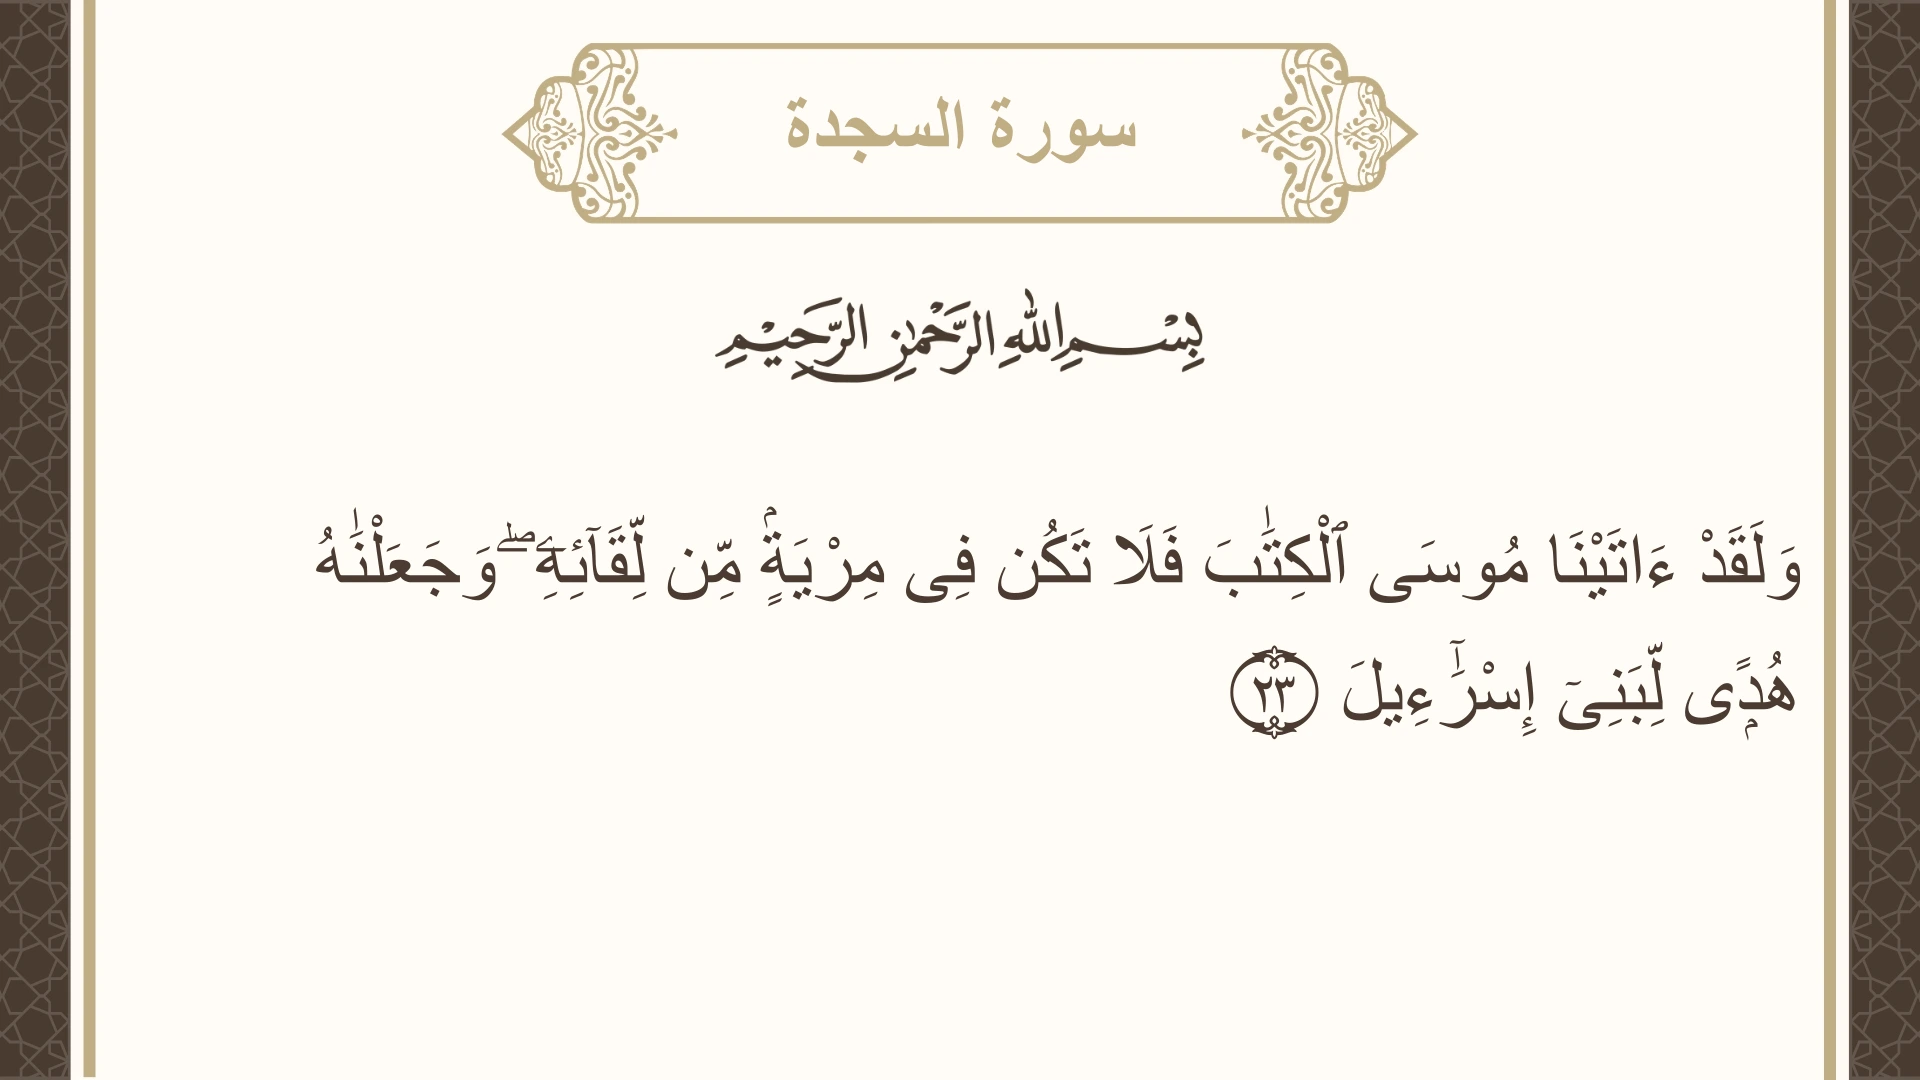 سورة السجدة
بِسْمِ اللهِ الرَّحْمٰنِ الرَّحِيْمِ
وَلَقَدْ ءَاتَيْنَا مُوسَى ٱلْكِتَٰبَ فَلَا تَكُن فِى مِرْيَةٍۢ مِّن لِّقَآئِهِۦ ۖ وَجَعَلْنَٰهُ
هُدًۭى لِّبَنِىٓ إِسْرَٰٓءِيلَ ٢٣